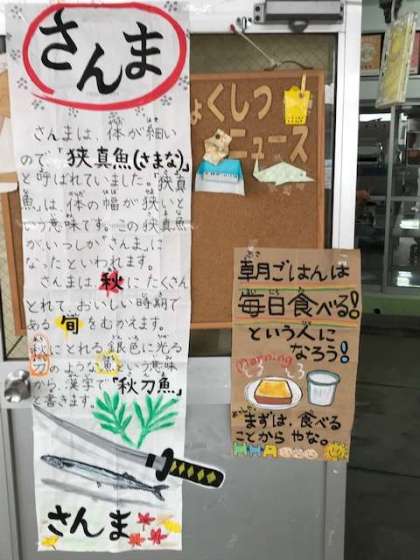 さんま
さんまは、体が細い
ので「狭真魚(さまな)」
と呼ばれていました。「狭真
魚」は体の幅が狭いと
いう意味です。この狭真魚
がいつしか「さんま」に
なったといわれます。
さんまは秋にたくさん
とれて、おいしい時期で
ある旬をむかえます。
秋にとれる銀色に光る
刀のような魚という意味
から、漢字で「秋刀魚」
と書きます。
さんま
ょくしつ
ニュース
朝ごはんは
毎日食べる!
という人に
なろう!
Morning
まずは、食べる
ことからやな。